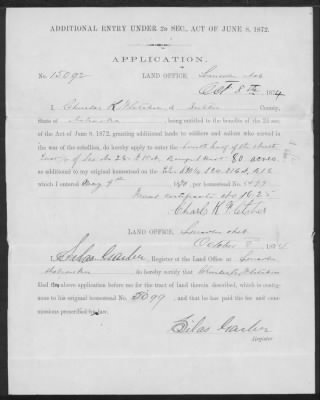 ADDITIONAL ENTRY UNDER 2D SEC., ACT OF JUNE 8, 1872.
APPLICATION.
No. 15092 LAND OFFICE, Lincoln Neb
Oct 8th 1874
I, Charles K Fletcher of County,
State of Nebraska being entitled to the benefits of the 2d sec.
of the Act of June 8, 1872, granting additional lands to soldiers and sailors who served in
the war of the rebellion, do hereby apply to enter the South half of the
of Sec No 80 acres
as additional to my original homestead on the
which I entered May 9th 1870, per homestead No. 5099
Final certificate No 1625
Charles K Fletcher
LAND OFFICE, Lincoln Neb
October 8 1874
I, Silas Garber, Register of the Land Office at Lincoln
Nebraska do hereby certify that Charles K Fletcher
filed the above application before me for the tract of land therein described, which is contig-
uous to his original homestead No. 5099, and that he has paid the fee and com-
missions prescribed by law.
Silas Garber
Register